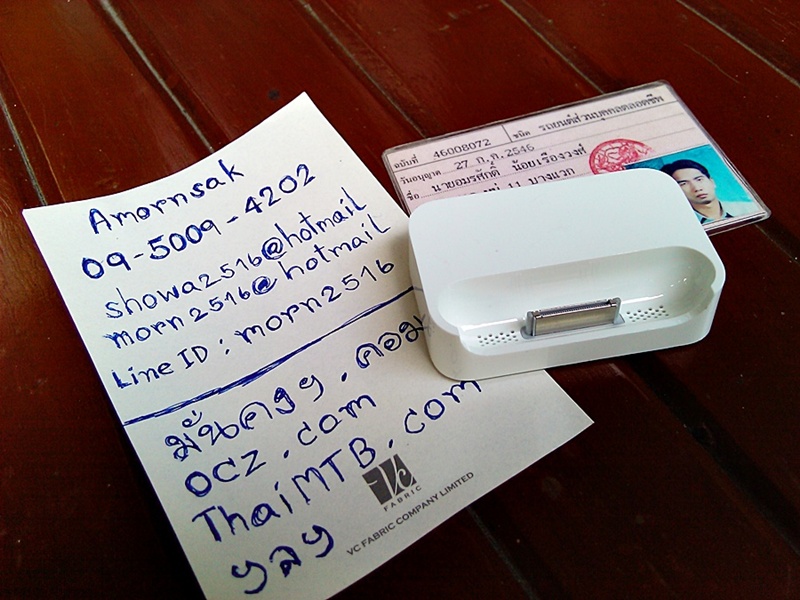 Amornsak
09-5009-4202
showa2516@hotmail
morn2516@hotmail
Line ID : morn2516
มั่นคงฯ . คอม
OCZ . com
ThaiMTB . com
ฯลฯ
VC
FABRIC
VC FABRIC COMPANY LIMITED
ฉบับที่ 46008072 ชนิด รถยนต์ส่วนบุคคลตลอดชีพ
วันอนุญาต 27 ก.ค.2546
ชื่อ นายอมรศักดิ์ น้อยเรืองวงศ์
11 บางแวก